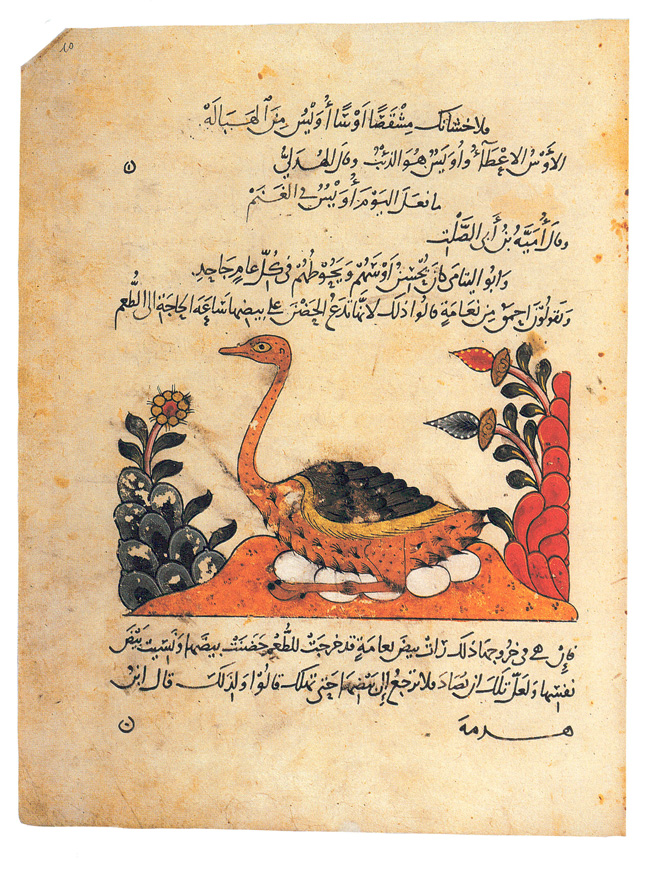 ١٥
فلاحشانك مِشْقَصًا أَوْسًا أُوَيْسُ مِنَ الْهَبَالَهْ
الأَوْسُ الاعْطَآءُ وأُوَيسٌ هُوَ الذئبُ وقال الهُذَلىُّ
ما فعَلَ اليَوْمَ أُوَيْسٌ فى الغَنَمْ
وقال أُمَيَّه بْنُ أَبى الصَّلْتِ
وَابو اليتامَى كانَ يُحْسِنُ أَوْسَهُمْ وَيَحُوطُهُمْ فى كُلِّ عامٍ جَاحِدِ
وَيَقولُونَ احمقُ مِن نَعَامَةٍ قالوا ذلك لأنَّها تدَعُ الحَضْنَ على بيضها ساعَة الحاجَة الى الطُّعم
فإن هى فى خُروجها ذلك رَات بيضَ نعامةٍ قد خرجَتْ للطُّعم حَضَنَتْ بيضَها وَنَسِيَتْ بَيْضَ
نفسِها وَلعَلّ تلكَ ان تُصَادَ فلا ترجعُ إلى بَيْضِها حَتى تهلك قالوا ولذلكَ قال ابنُ
هرمه